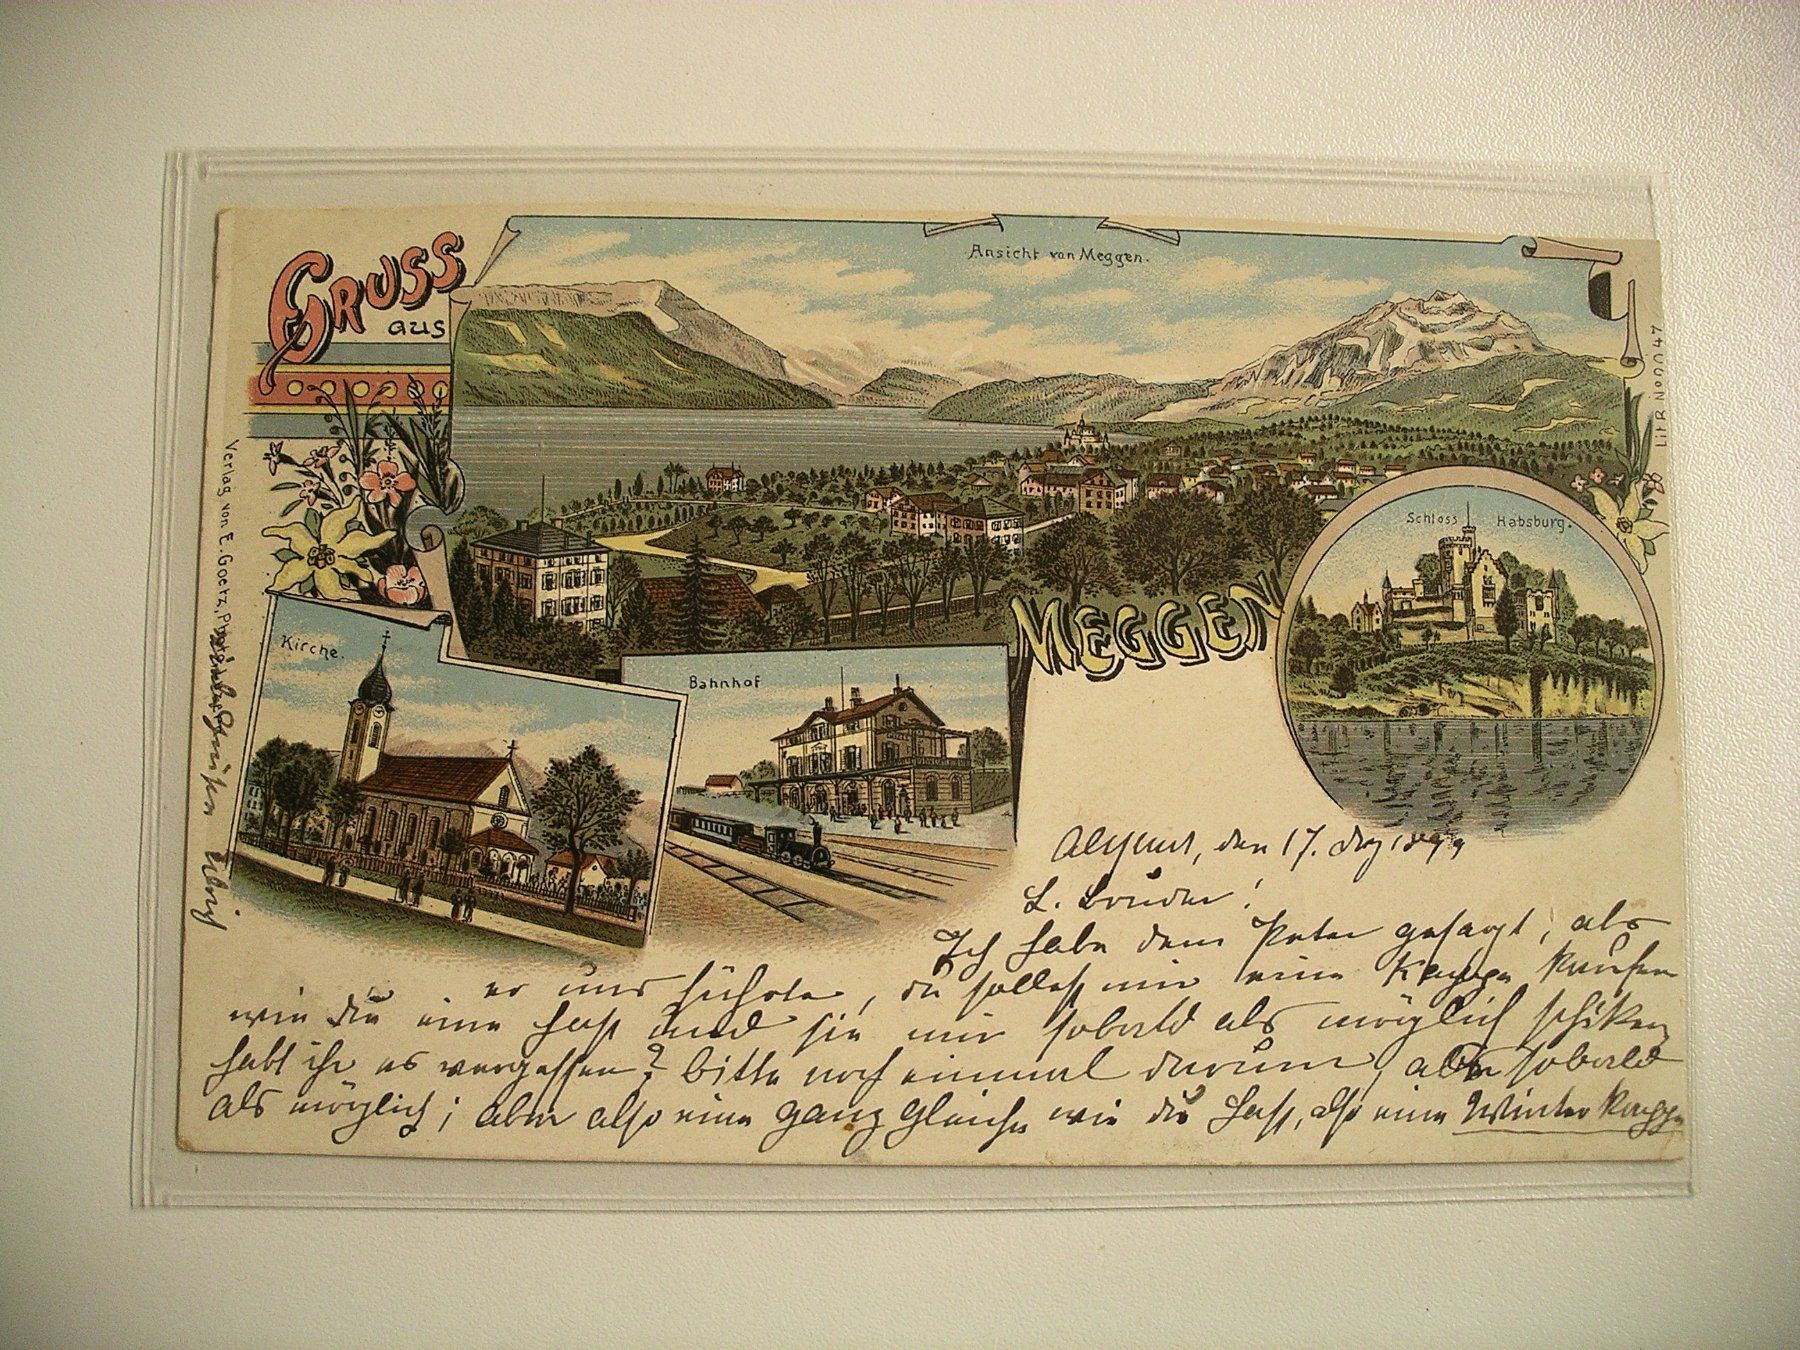 GRUSS
aus
Ansicht von Meggen.
MEGGEN
Schloss Habsburg.
Kirche.
Bahnhof
Verlag von E. Goetz,
Lit B No 0047
den 17. Dez 1899
L. Bruder!
Ich habe dem Peter gesagt, als
er uns führte, du sollest mir eine Kappe kaufen
wie du eine hast und sie mir sobald als möglich schiken
habt ihr es vergessen? bitte noch einmal darum, aber sobald
als möglich; aber also eine ganz gleiche wie du hast, also eine Winterkappe